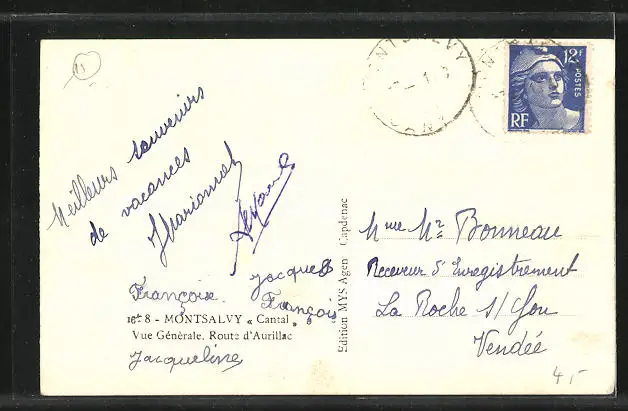 11
MONTSALVY
CANT
12F
POSTES
RF
Meilleurs souvenirs
de vacances
Françoise Jacques
François
16e 8 - MONTSALVY « Cantal
Vue Générale. Route d'Aurillac
Jacqueline
Edition MYS Agen Capdenac
Mme Mr Bonneau
Receveur d'Enregistrement
La Roche s/ Yon
Vendée
4,-